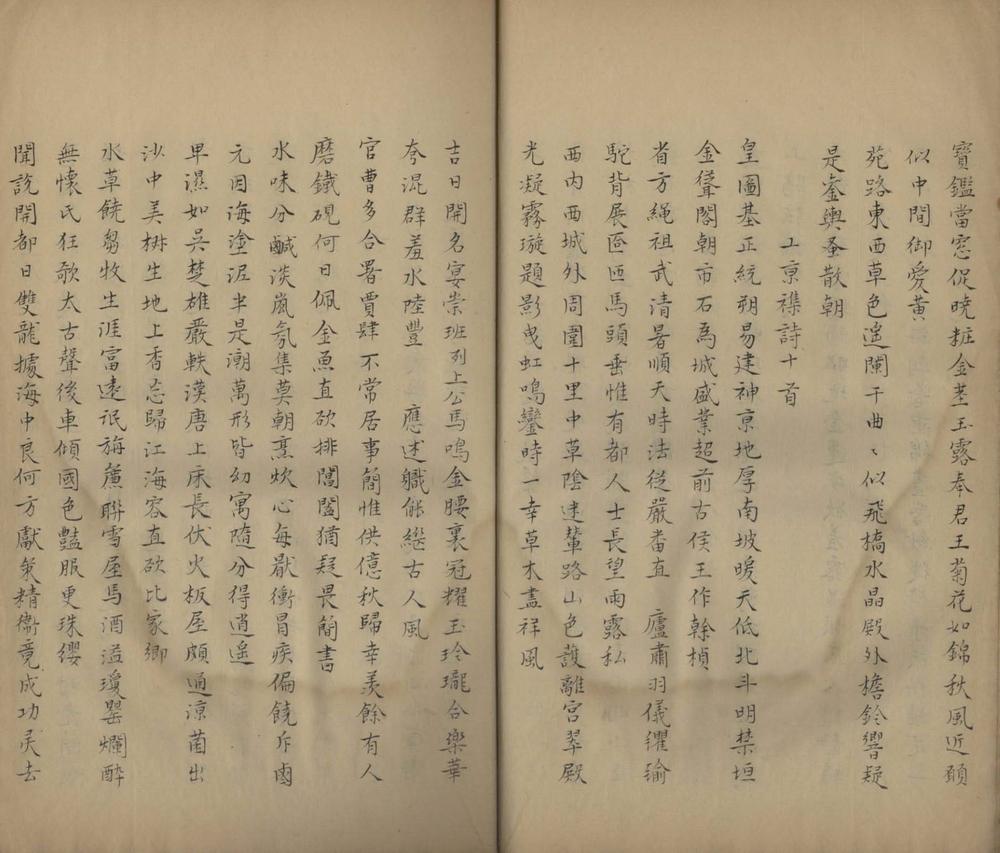 寳鑑當窓促曉粧金莖玉露奉君王菊花如錦秋風近頋
似中間御愛黃
苑路東西草色遥闌干曲〻似飛橋水晶殿外檐鈴響疑
是鑾輿蚤散朝
上京襍詩十首
皇圖基正統朔易建神京地厚南坡暖天低北斗明禁垣
金聳閣朝市石為城盛業超前古侯王作榦楨
省方繩祖武清暑順天時法從嚴畨直 廬肅羽儀纙瑜
駝背展匼匝馬頭垂惟有都人士長望雨露私
西内西城外周圍十里中草陰迷輦路山色護離宮翠殿
光凝霧璇題影曵虹鳴鑾時一幸草木盡祥風
吉日開名宴崇班列上公馬鳴金腰褭冠耀玉玲瓏合樂華
夸混群羞水陸豐 應述軄能繼古人風
官曹多合署賈肆不常居事簡惟供億秋歸幸羨餘有人
磨鐵硯何日佩金魚直欲排閶闔猶疑畏簡書
水味分鹹淡嵐氛集莫朝烹炊心每厭衝冒疾偏饒斥鹵
元因海塗泥半是潮萬形皆幻寓隨分得逍遥
卑濕如吳楚雄嚴軼漢唐上床長伏火板屋頗通涼菌出
沙中美椒生地上香忘歸江海客直欲比家鄉
水草饒芻牧生涯富遠氓旃廬聯雪屋馬酒溢瓊罌爛醉
無懷氏狂歌太古聲後車傾國色豔服更珠纓
聞說開都日雙龍據海中良何方獻策精衞竟成功灵去